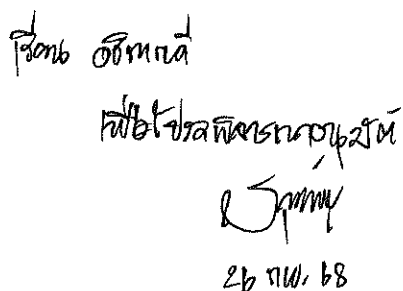 เรียน อธิการบดี
เพื่อโปรดพิจารณาอนุมัติ
26 กพ. 68